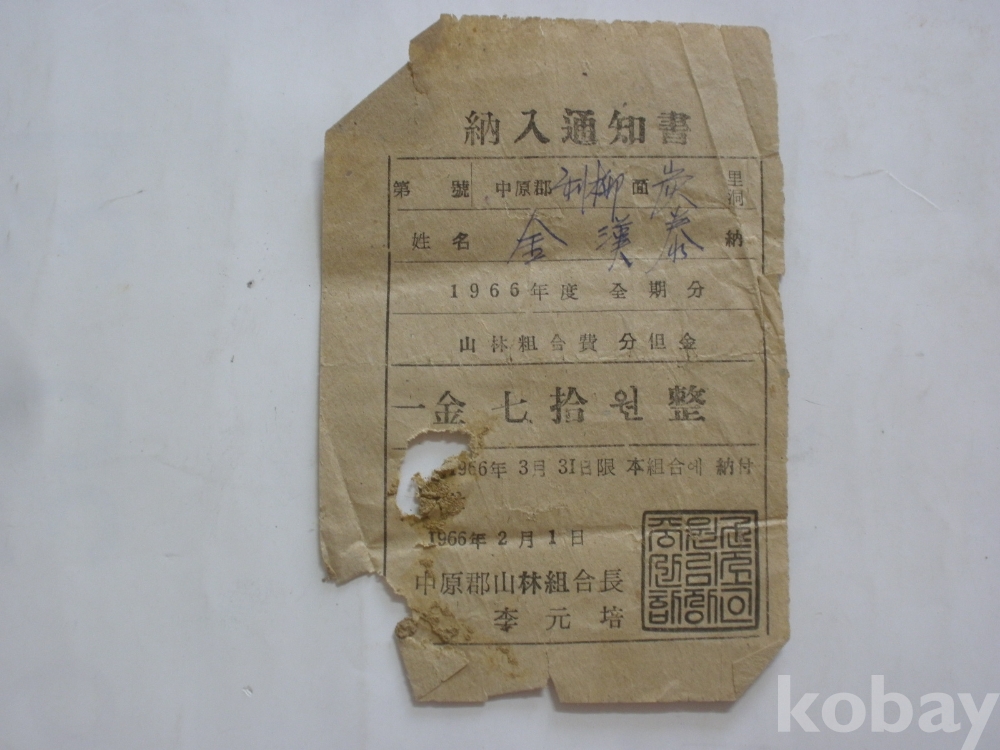 納入通知書
第 號 中原郡 利柳 面 炭 里洞
姓名 金漢泰 納
1966年度 全期分
山林組合費分但金
一金七拾원整
1966年 3月 31日限 本組合에 納付
1966年 2月 1日
中原郡山林組合長
李元培
kobay